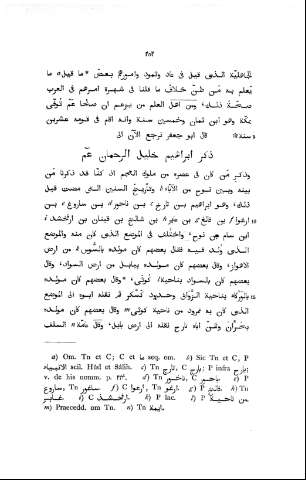 ٢٥٢
الجاهلية الذين قيل في عاد وثمود وامورهم بعض ما قيل ما
يعلم به من ظن خلاف ما قلنا في شهرة امرهم في العرب
صحة ذلك، ومن اهل العلم من يزعم ان صالحا عم توفى
بمكة وهو ابن ثمان وخمسين سنة وانه اقام في قومه عشرين
سنة قال ابو جعفر نرجع الآن الى
ذكر ابراهيم خليل الرحمان عم
وذكر من كان في عصره من ملوك العجم اذ كنا قد ذكرنا من
بينه وبين نوح من الآباء وتاريخ السنين التى مضت قبل
ذلك، وهو ابراهيم بن تارخ بن ناحور بن ساروغ بن
ارغوا بن فالغ بن عابر بن شالخ بن قينان بن ارفخشد
ابن سام بن نوح، واختلف في الموضع الذى كان منه والموضع
الذى ولد فيه فقال بعضهم كان مولده بالسوس من ارض
الاهواز، وقال بعضهم كان مولده ببابل من ارض السواد، وقال
بعضهم كان بالسواد بناحية كوثى، وقال بعضهم كان مولده
بالوركاء بناحية الزوابى وحدود كسكر ثم نقله ابوه الى الموضع
الذى كان به نمرود من ناحية كوثى، وقال بعضهم كان مولده
بحران ولكن اباه تارخ نقله الى ارض بابل، وقال عامة السلف
a) Om. Tn et C; C et ما seq. om. b) Sic Tn et C, P
scil. Hûd et Sâlih. c) Tn تارح; C تارح; P infra
v. de his nomm. p. d) Tn C e) P
Tn f) C Tn g) P Tn h) Tn
C i) C k) P lac. l) P
m) Praecedd. om Tn. n) Tn